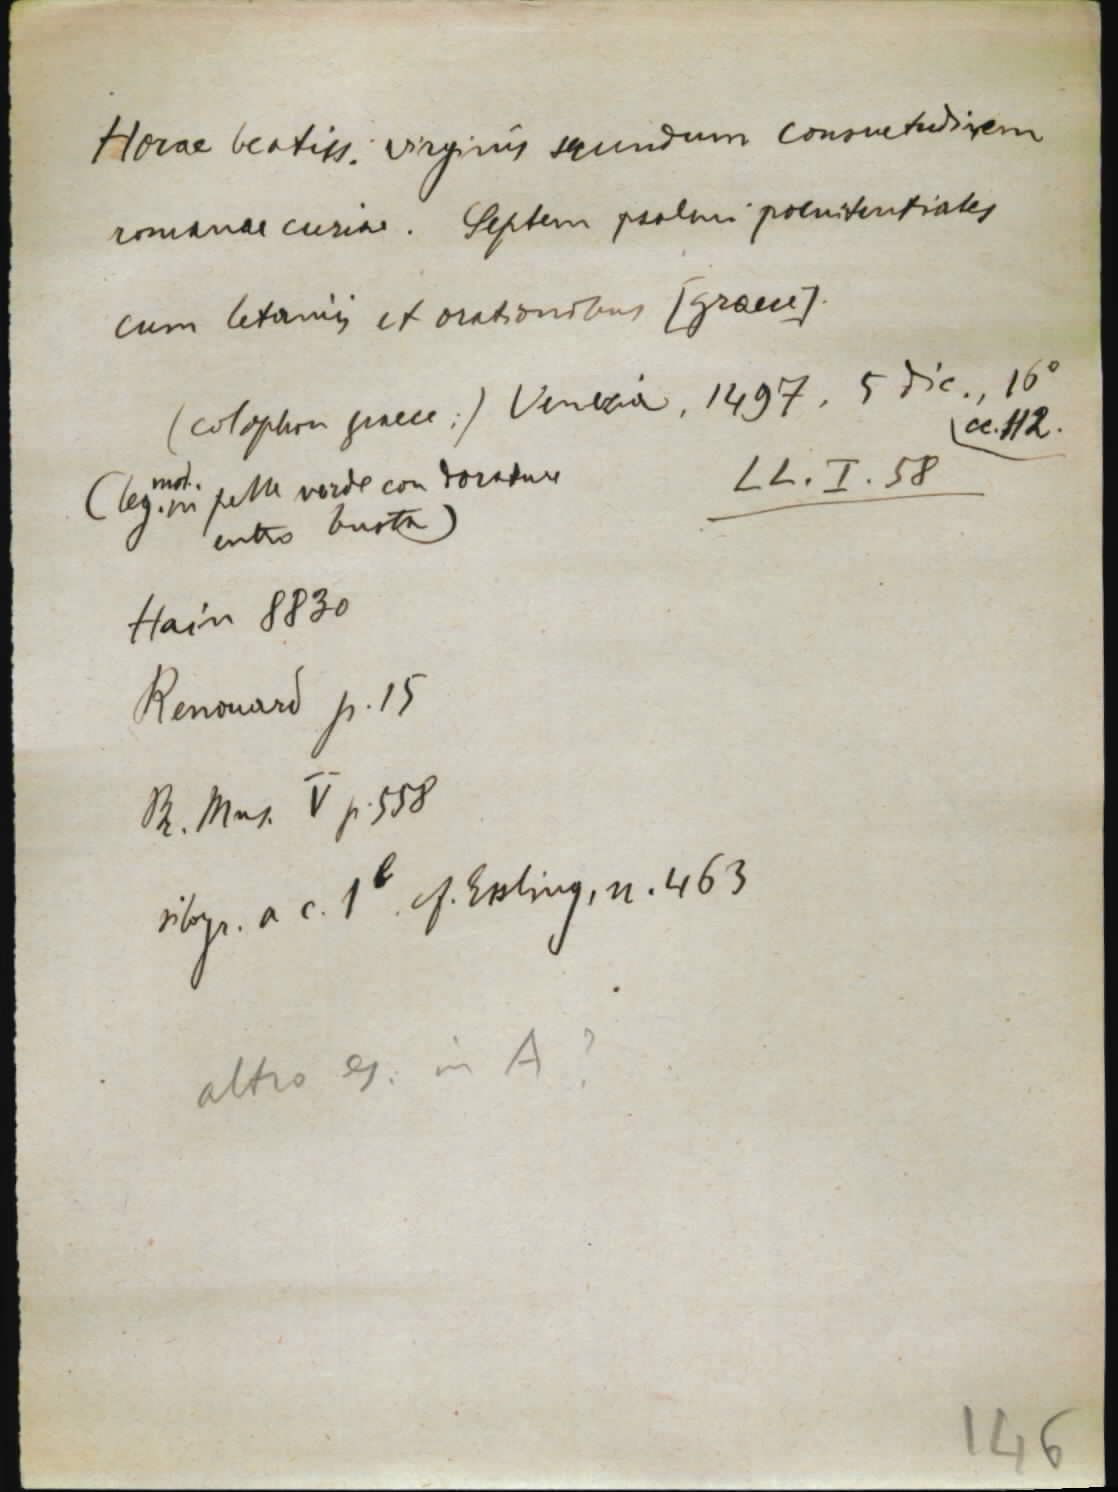 Horae beatiss. virginis secundum consuetudinem
romanae curiae. Septem psalmi poenitentiales
cum letaniis et orationibus [graece].
(colophon graece:) Venezia, 1497, 5 dic., 16°
cc. 112.
(leg. mod. in pelle verde con dorature
entro busta)
LL. I. 58
Hain 8830
Renouard p. 15
Br. Mus. V p. 558
silogr. a c. 1b cf. Essling, n. 463
altro es. in A ?
146